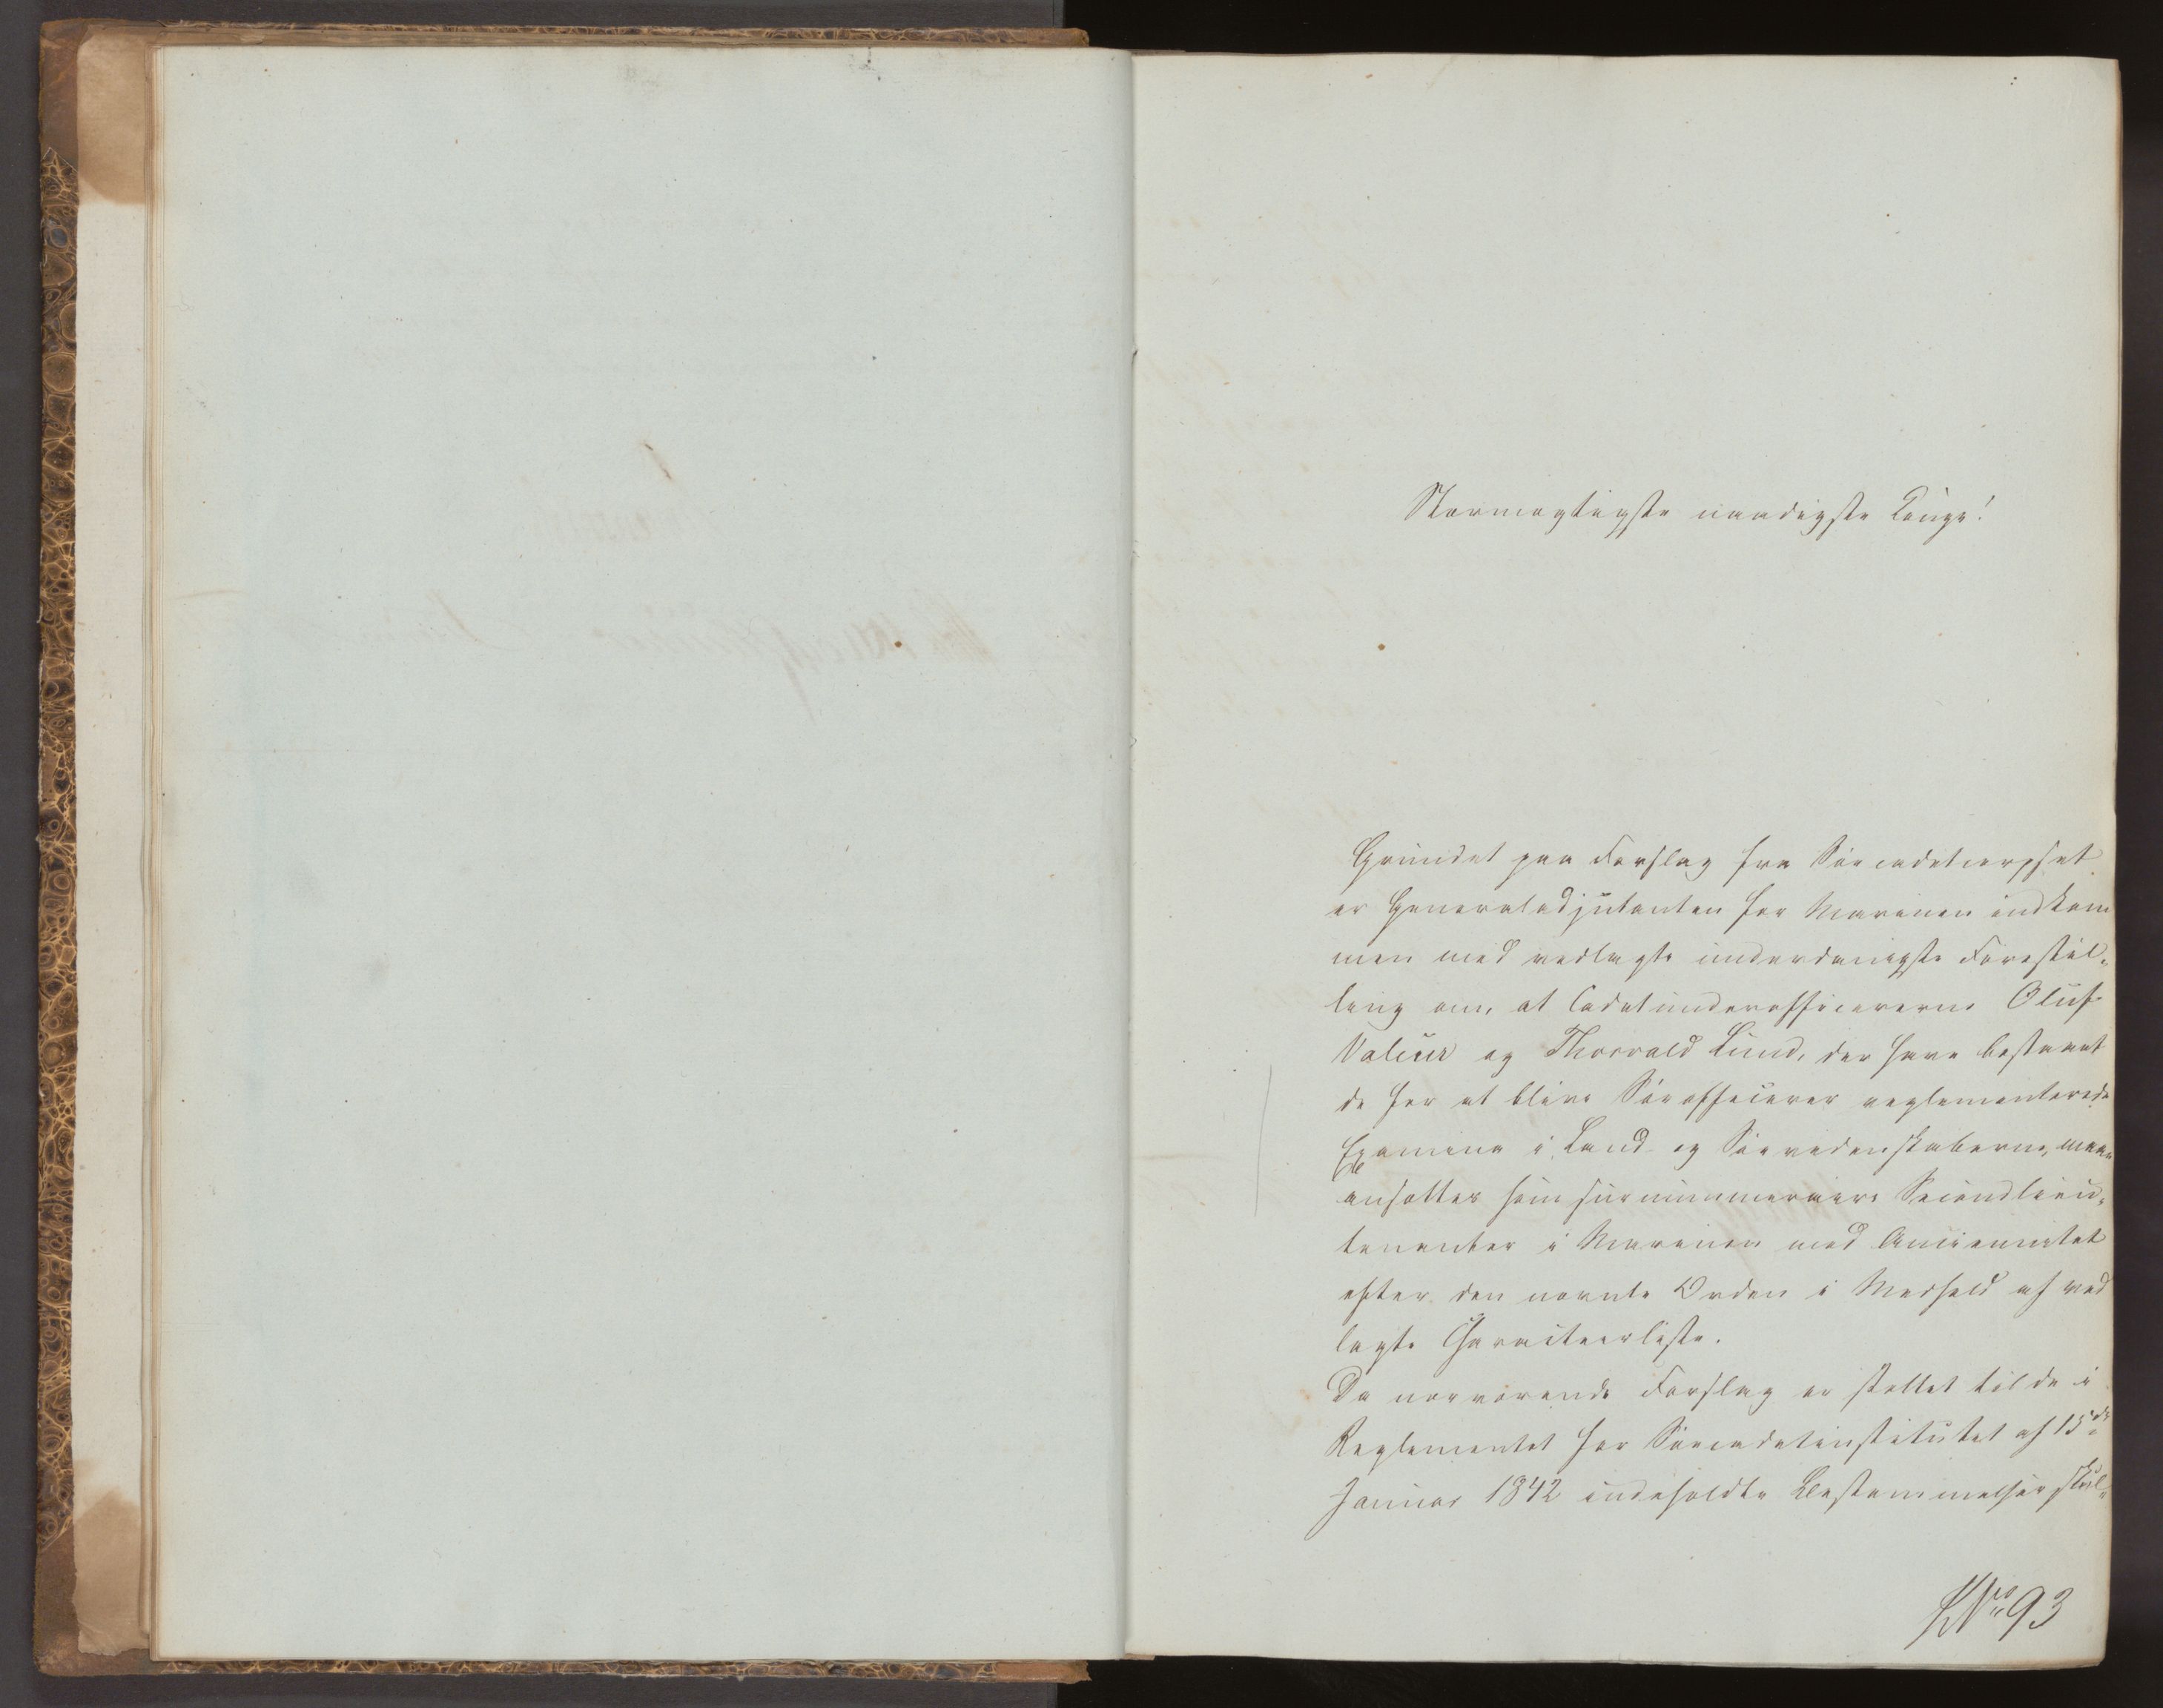 Stormægtigste naadigste Konge!
Grundet paa Forslag fra Søecadetcorpset
er Generaladjutanten for Marinen indkom
men med vedlagte underdanigste Forestil-
ling om, at Cadetunderofficererne Oluf
Valeur og Thorvald Lund, der have bestaaet
de for at blive Søeofficerer reglementerede
Examina i Land- og Søevidenskaberne, maae
ansættes som surnummeraire Secondlieu-
tenanter i Marinen med Anciennitet
efter den nævnte Orden i Medhold af ved
lagte Characteerliste.
Da nærværende Forslag er stillet til de i
Reglementet for Søecadetinstitutet af 15de
Januar 1842 indeholdte Bestemmelser skul-
No 93